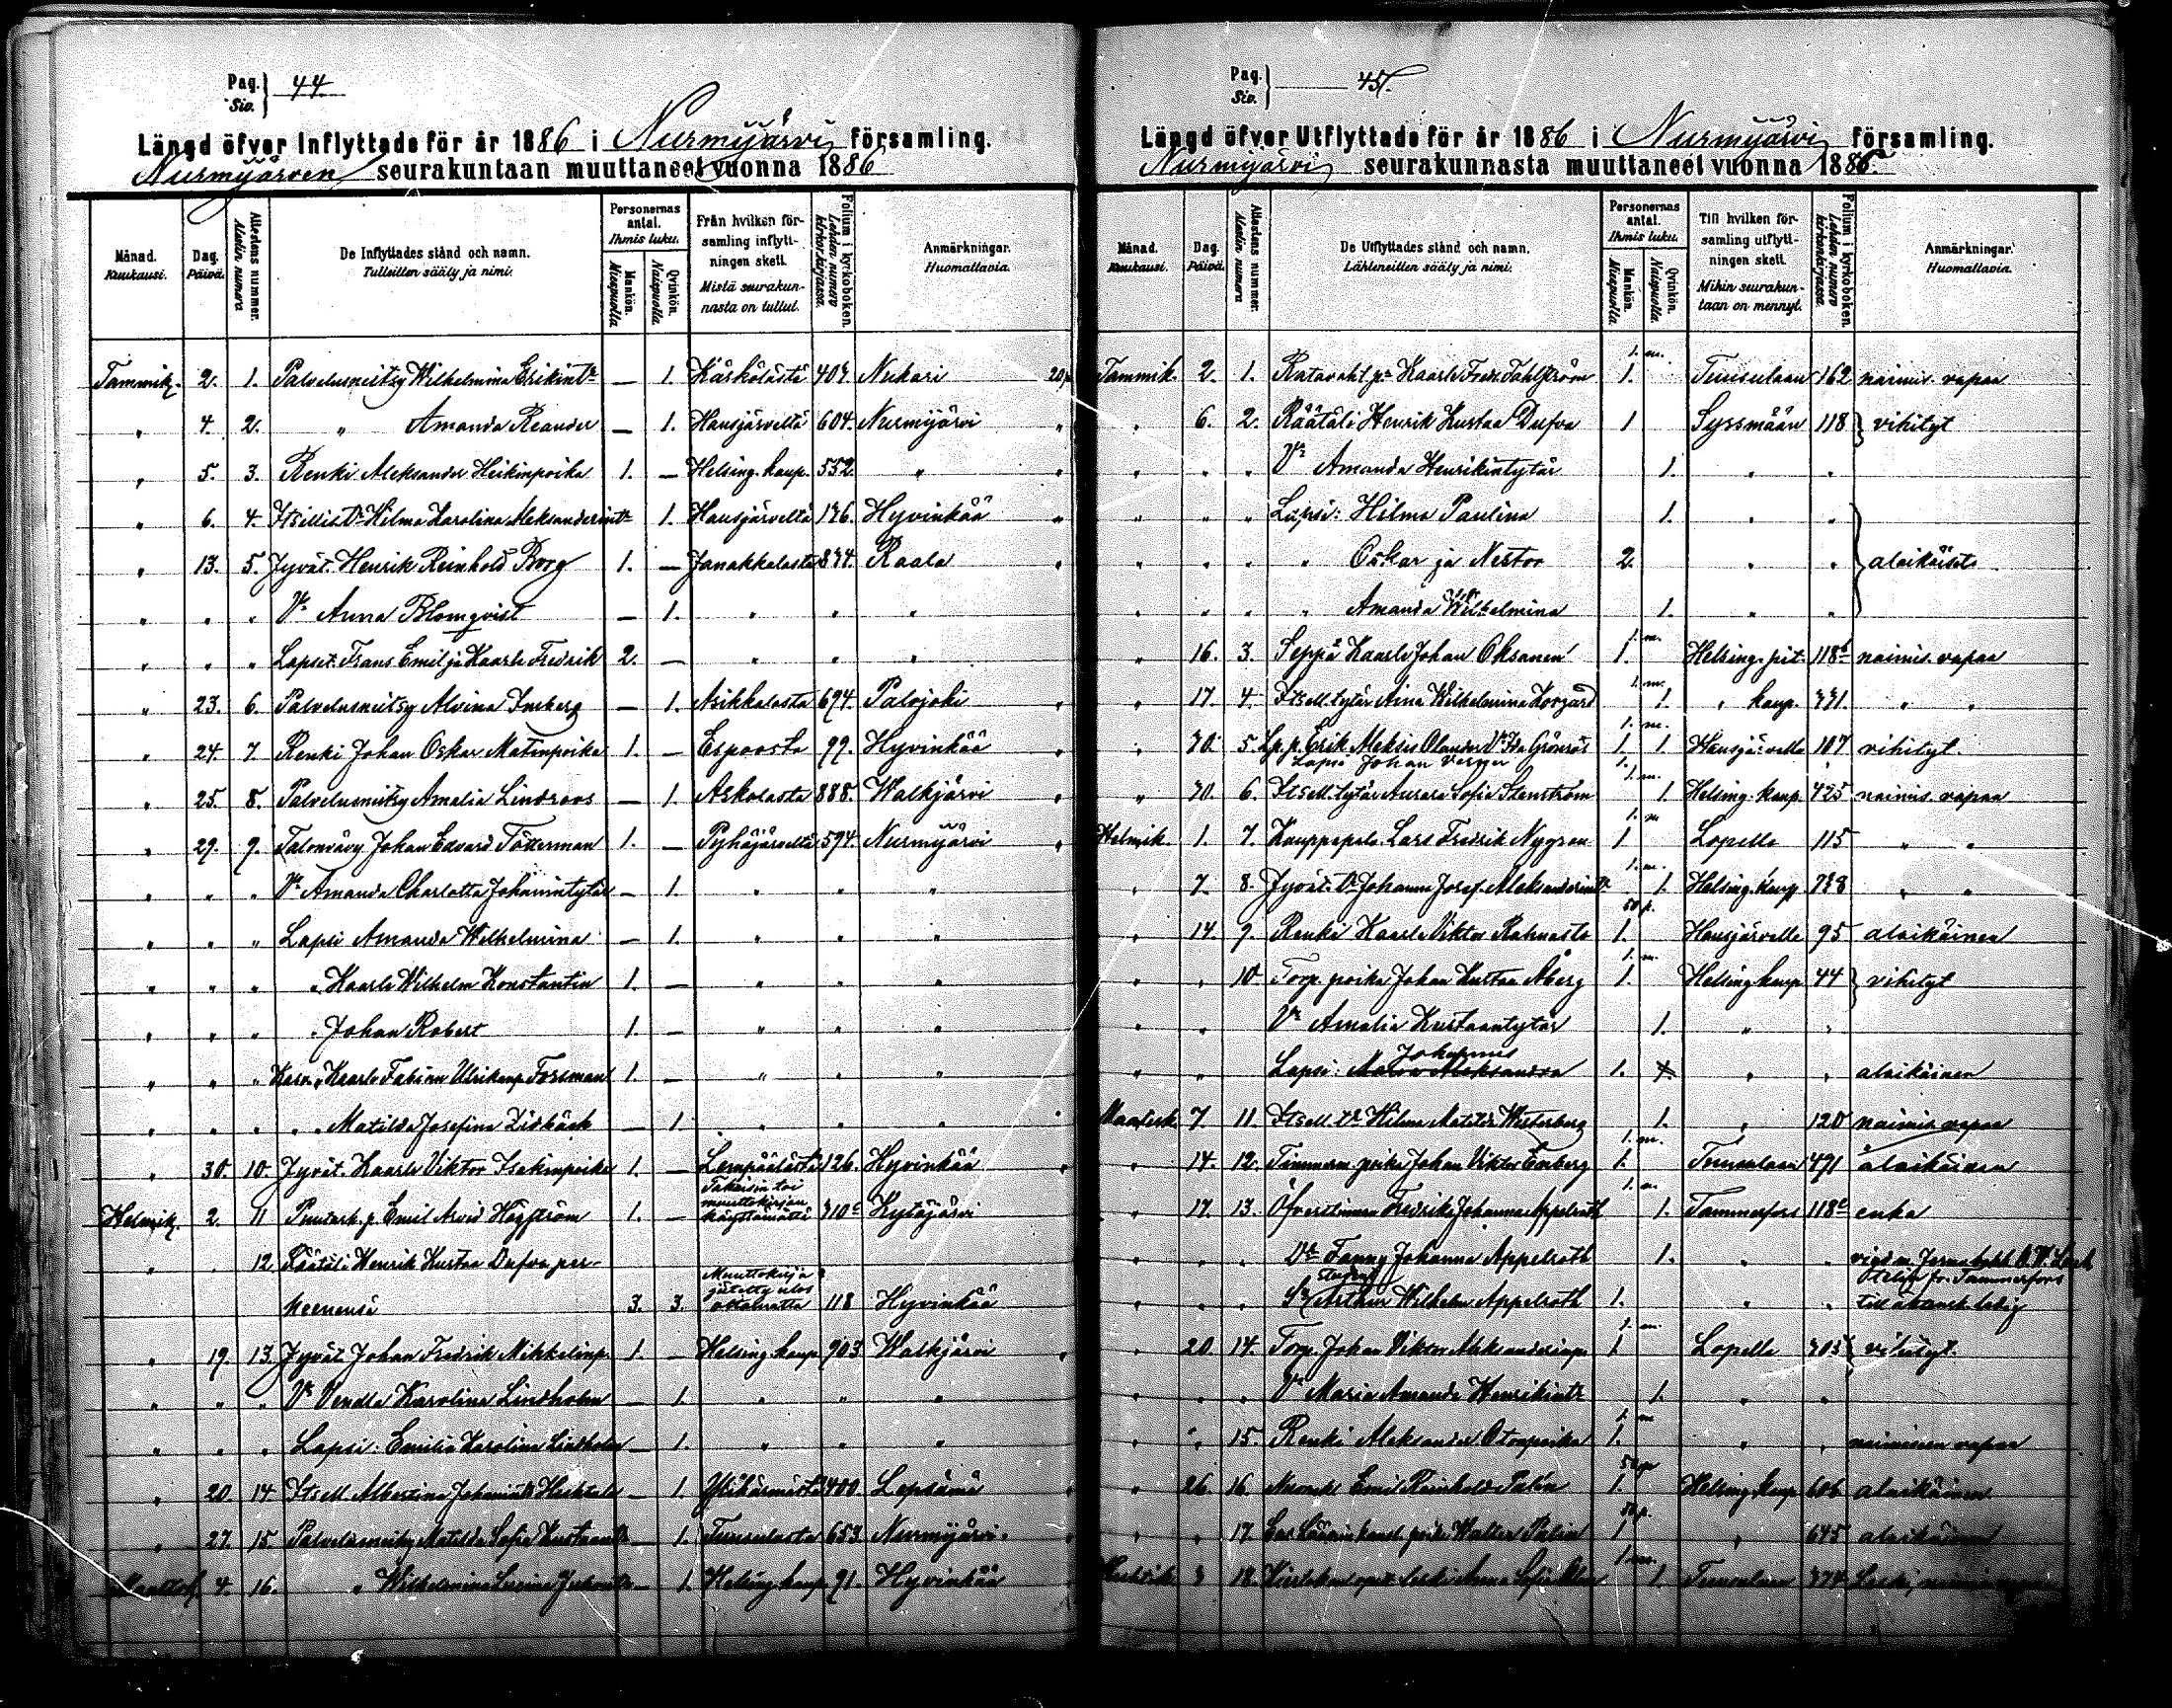 Pag. Siv. 44
Längd öfver Inflyttade för år 1886 i Nurmijärvi församling.
Nurmijärven seurakuntaan muuttaneet vuonna 1886
Månad. Kuukausi.
Dag. Päivä.
Attestens nummer. Atestin numero
De Inflyttades stånd och namn. Tulleitten sääty ja nimi.
Personernas antal. Ihmis luku.
Mankön. Miespuolia
Qvinkön. Naispuolia
Från hvilken församling inflyttningen skett. Mistä seurakunnasta on tullut.
Folium i kyrkoboken. Lehden numero kirkonkirjassa.
Anmärkningar. Huomattavia.
Tammik. 2. 1. Palvelusneitsy Wilhelmina Erikintr — 1. Kärkölästä 407. Nukari
" 4. 2. " Amanda Reander — 1. Hausjärveltä 604. Nurmijärvi
" 5. 3. Renki Aleksander Heikinpoika 1. — Helsing. kaup. 552. "
" 6. 4. Itsellis tr Hilma Karolina Aleksanderintr 1. Hausjärveltä 176. Hyvinkää
" 13. 5. Jyvät. Henrik Reinhold Borg 1. — Janakkalasta 874. Raala
" " " Vo Anna Blomqvist — 1. " " "
" " " Lapset Frans Emil ja Kaarle Fredrik 2. — " " "
" 23. 6. Palvelusneitsy Alvina Imberg — 1. Asikkalasta 694. Palojoki
" 24. 7. Renki Johan Oskar Matinpoika 1. — Espoosta 99. Hyvinkää
" 25. 8. Palvelusneitsy Amalia Lindroos — 1. Askolasta 888. Walkjärvi
" 29. 9. Talonvävy Johan Edvard Tötterman 1. — Pyhäjärveltä 594. Nurmijärvi
" " " Vo Amanda Charlotta Johanintytär — 1. " " "
" " " Lapsi Amanda Wilhelmina — 1. " " "
" " " " Kaarle Wilhelm Konstantin 1. — " " "
" " " " Johan Robert 1. — " " "
" " " Kasv. " Kaarle Fabian Ulrikanp. Forsman 1. — " " "
" " " " " Matilda Josefina Lidbäck — 1. " " "
" 30. 10. Jyvät. Kaarle Viktor Isakinpoika 1. — Lempäälästä 126. Hyvinkää
Helmik. 2. 11 Puutarh. p. Emil Arvid Högström 1. — Takaisin toi muuttokirjan käyttämättä 710 Kytäjärvi
" " 12 Räätäli Henrik Kustaa Dufva per-
heenensä 3. 3. Muuttokirja jätetty ulos ottamatta 118 Hyvinkää
" 19. 13. Jyvät. Johan Fredrik Mikkelinp. 1. — Helsing. kaup. 903 Walkjärvi
" " " Vo Vendla Karolina Lindholm — 1. " " "
" " " Lapsi: Emilia Karolina Lindholm — 1. " " "
" 20. 14 Itsell. Albertina — 1. 400 Lepsämä
" 27. 15 Palvelusneitsy Matilda Sofia Kustaantr — 1. Tuusulasta 653. Nurmijärvi.
4. 16. " Wilhelmina — 1. Helsing. kaup. 91. Hyvinkää
Pag. Siv. 45.
Längd öfver Utflyttade för år 1886 i Nurmijärvi församling.
Nurmijärvi seurakunnasta muuttaneet vuonna 1886.
Månad. Kuukausi.
Dag. Päivä.
Attestens nummer. Atestin numero
De Utflyttades stånd och namn. Lähteneitten sääty ja nimi.
Personernas antal. Ihmis luku.
Mankön. Miespuolia
Qvinkön. Naispuolia
Till hvilken församling utflyttningen skett. Mihin seurakuntaan on mennyt.
Folium i kyrkoboken. Lehden numero kirkonkirjassa.
Anmärkningar. Huomattavia.
Tammik. 2. 1. Ratavaht. pa Kaarle Fredr. Tahlström 1. 1. m. Tuusulaan 162 naimis. vapaa
" 6. 2. Räätäli Henrik Kustaa Dufva 1 Syssmään 118 vihityt
" " " Vo Amanda Henrikintytär 1. " "
" " " Lapsi: Hilma Paulina 1. " "
" " " " Oskar ja Nestor 2. " " alaikäiset
" " " " Amanda Wilhelmina 1. " "
" 16. 3. Seppä Kaarle Johan Oksanen 1. 1. m. Helsing. pit. 118 naimis. vapaa
" 17. 4. Itsell. tytär Aina Wilhelmina Korgård 1. m. 1. " kaup. 771. " "
" 30. 5. Lp. p. Erik Aleksis Olander Vo Ida Grönroos 1. 1. m. 1 Hausjärvelle 107 vihityt.
Lapsi Johan Verner 1.
" 30. 6. Itsell. tytär Aurora Sofia Stenström 1. m. 1 Helsing. kaup. 425 naimis. vapaa
Helmik. 1. 7. Kauppapalv. Lars Fredrik Nygren 1 1. m Lopelle 115 " "
" 7. 8. Jyvät. tr Johanna Josef. Aleksanderintr 1. m. 1. Helsing. kaup. 738 " "
" 14. 9. Renki Kaarle Viktor Rahnasto 1. 50 p. Hausjärvelle 95 alaikäinen
" " 10. Torp. poika Johan Kustaa Åberg 1. 1. m. Helsing kaup. 44 vihityt
" " Vo Amalia Kustaantytär 1. " "
" " Lapsi: Johannes 1. " " alaikäinen
Maalisk. 7. 11. Itsell. tr Hilma Matilda Westerberg 1. " 120 naimis. vapaa
" 14. 12. Timmerm. poika Johan Viktor Enberg 1. 1. m. Tuusulaan 491 alaikäinen
" 17. 13. Öfverstinnan Fredrika Johanna Appelroth 1. m. 1. Tammerfors 118 enka
" " " Dr Fanny Johanna Appelroth 1. " "
" " " Student Sn Arthur Wilhelm Appelroth 1. " " ledig
" 20. 14. Torp. Johan Viktor Aleksanderinp. 1 1. m. Lopelle 703 vihityt.
" " " Vo Maria Amanda Henrikintr 1. " "
" " 15. Renki Aleksander Otonpoika 1. 1. m " " naimisen vapaa
" 26. 16. Emil Reinhold Palin 1. 50 p Helsing. kaup. 606 alaikäinen
" " 17. poika Walter Palin 1 50 p. " 645 alaikäinen
18. leski Anna Sofia 1 m. 1. Tuusulaan 774 Leski,